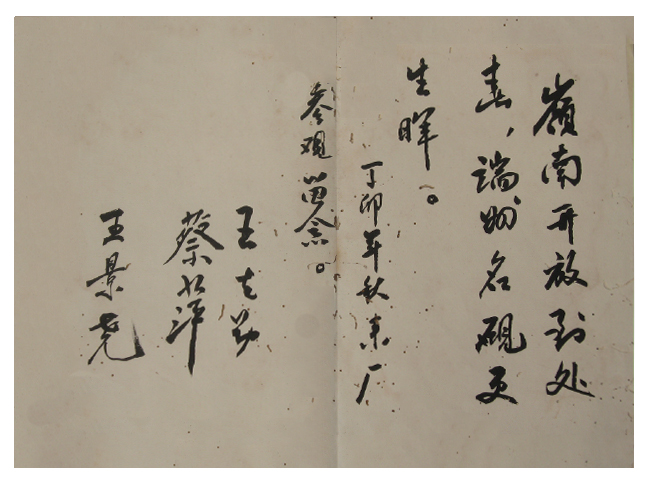 嶺南开放到处
春，端州名砚更
生晖。
丁卯年秋来厂
参观留念。
王志勤
蔡公萍
王景尧